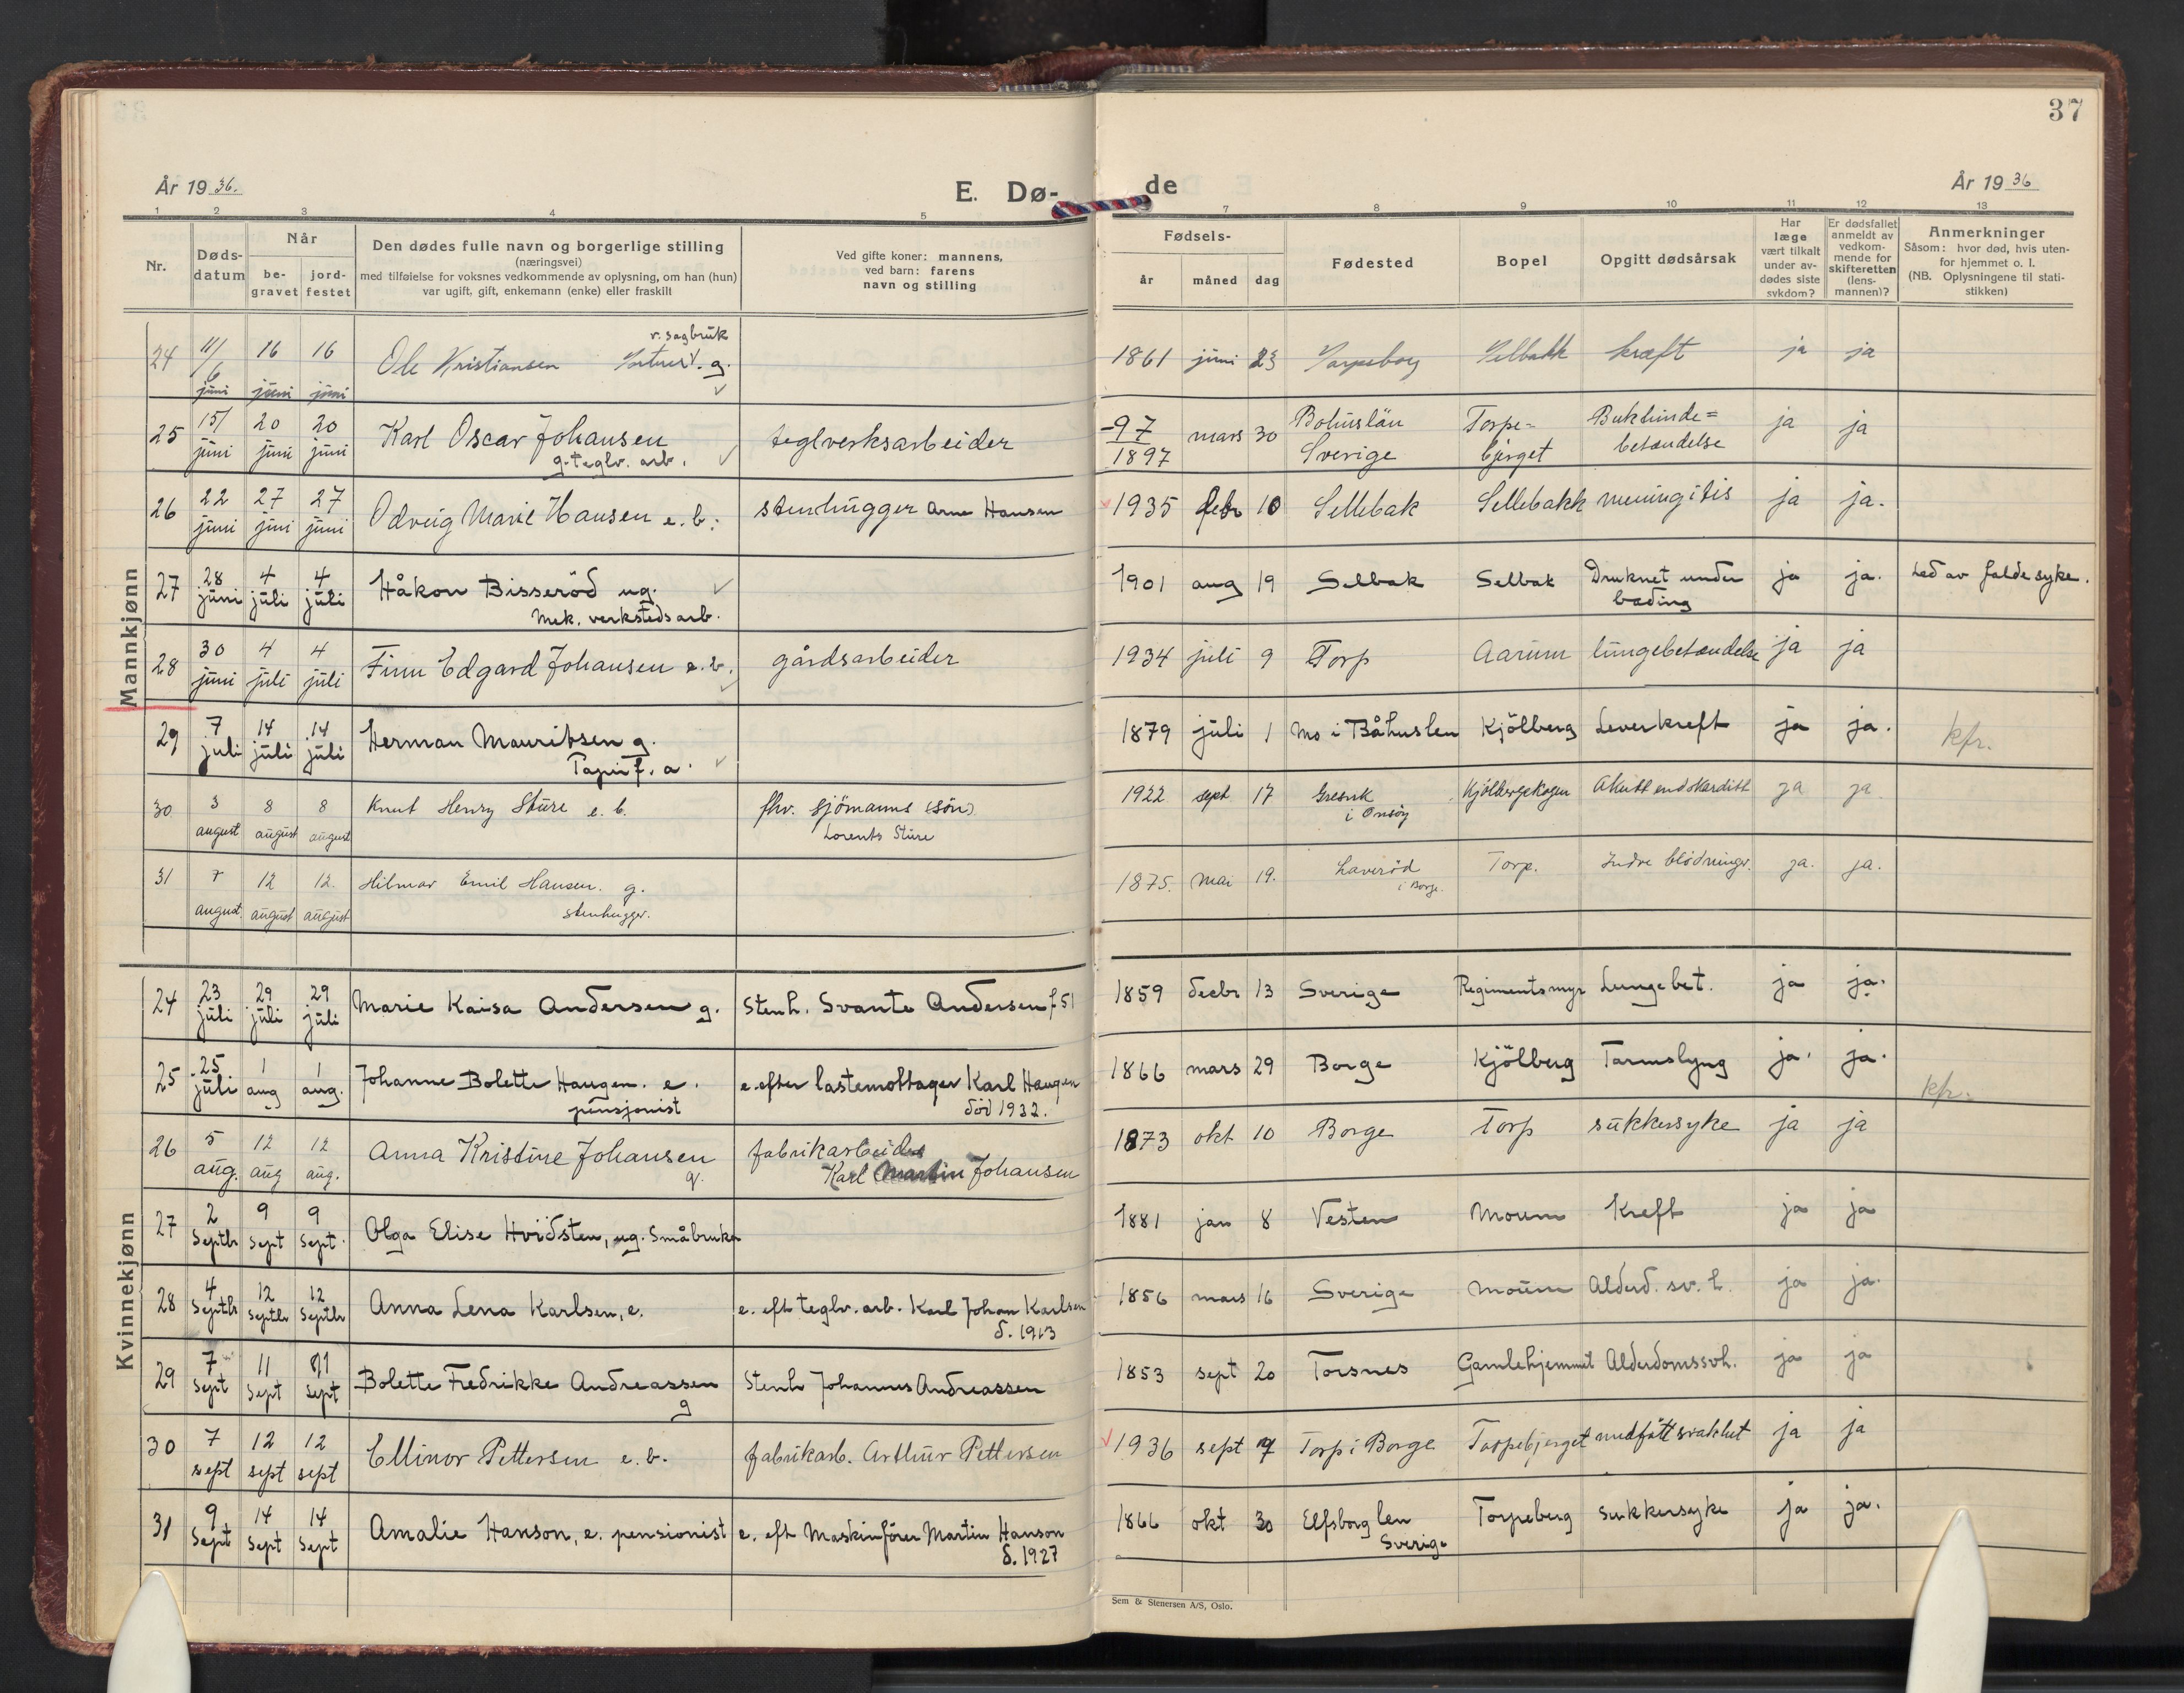 37
År 1936.
E. Dø-
de
År 1936
1 2 3 4 5 7 8 9 10 11 12 13
Nr.
Døds-
datum
Når
be-
gravet
jord-
festet
Den dødes fulle navn og borgerlige stilling
(næringsvei)
med tilføielse for voksnes vedkommende av oplysning, om han (hun)
var ugift, gift, enkemann (enke) eller fraskilt
Ved gifte koner: mannens,
ved barn: farens
navn og stilling
Fødsels-
år måned dag
Fødested
Bopel
Opgitt dødsårsak
Har
læge
vært tilkalt
under av-
dødes siste
sykdom?
Er dødsfallet
anmeldt av
vedkom-
mende for
skifteretten
(lens-
mannen)?
Anmerkninger
Såsom: hvor død, hvis uten-
for hjemmet o. l.
(NB. Oplysningene til stati-
stikken)
Mannkjønn
v. sagbruk
24 11/6 16 16 Ole Kristiansen g. 1861 juni 23 Sarpsborg Selbakk kræft ja ja
juni juni juni
25 15/ 20 20 Karl Oscar Johansen teglverksarbeider -97 mars 30 Bohuslän Torpe- Bukhinde= ja ja
juni juni juni g. teglv. arb. 1897 Sverige bjerget betændelse
26 22 27 27 Odveig Marie Hansen e. b. stenhugger Arne Hansen 1935 febr 10 Sellebak Sellebakk meningitis ja ja.
juni juni juni
27 28 4 4 Håkon Bisseröd ug. 1901 aug 19 Selbak Selbak Druknet under ja ja. Led av faldesyke.
juni juli juli Mek. verkstedsarb. bading
28 30 4 4 Finn Edgard Johansen e. b. gårdsarbeider 1934 juli 9 Torp Aarum lungebetændelse ja ja
juni juli juli
29 7 14 14 Herman Mauritsen g. 1879 juli 1 Mo i Båhuslen Kjölberg Leverkreft ja ja. kfr.
juli juli juli Papirf. a.
30 3 8 8 Knut Henry Sture e. b. fhv. sjömanns (sön) 1922 sept 17 Gresvik Kjölbergskogen Akutt endokarditt ja ja
august august august Lorents Sture i Onsöy
31 7 12 12. Hilmar Emil Hansen. g. 1875. Mai 19. Laveröd Torp. Indre blödninger. ja. ja.
august august august stenhugger. i Borge.
Kvinnekjønn
24 23 29 29 Marie Kaisa Andersen g. Stenh. Svante Andersen f 51 1859 decbr 13 Sverige Regimentsmyr Lungebet. ja ja.
juli juli juli
25 25 1 1 Johanne Bolette Haugen. e. e. efter lastemottager Karl Haugen 1866 mars 29 Borge Kjölberg Tarmslyng ja. ja. kfr.
juli aug aug. pensjonist död 1932.
26 5 12 12 Anna Kristine Johansen fabrikarbeider 1873 okt 10 Borge Torp sukkersyke ja ja
aug. aug aug. g. Karl Martin Johansen
27 2 9 9 Olga Elise Hvidsten, ug. Småbruker 1881 jan 8 Vesten Moum Kreft ja ja
Septbr Sept Sept.
28 4 12 12 Anna Lena Karlsen, e. e. eft teglv. arb. Karl Johan Karlsen 1856 mars 16 Sverige Moum Alderd. sv. h. ja ja.
Septbr Septbr Septbr d. 1913
29 7 11 11 Bolette Fredrikke Andreassen Stenh Johannes Andreassen 1853 sept 20 Torsnes Gamlehjemmet Alderdomssvh. ja ja
Sept Sept Sept g
30 7 12 12 Ellinor Pettersen e. b. fabrikarb. Arthur Pettersen 1936 sept 7 Torp i Borge Torpebjerget medfött svakhet ja ja
sept sept sept
31 9 14 14 Amalie Hanson, e. pensionist e. eft Maskinförer Martin Hanson 1866 okt 30 Elfsborg len Torpeberg Sukkersyke ja ja.
Sept Sept Sept d. 1927 Sverige
Sem & Stenersen A/S, Oslo.